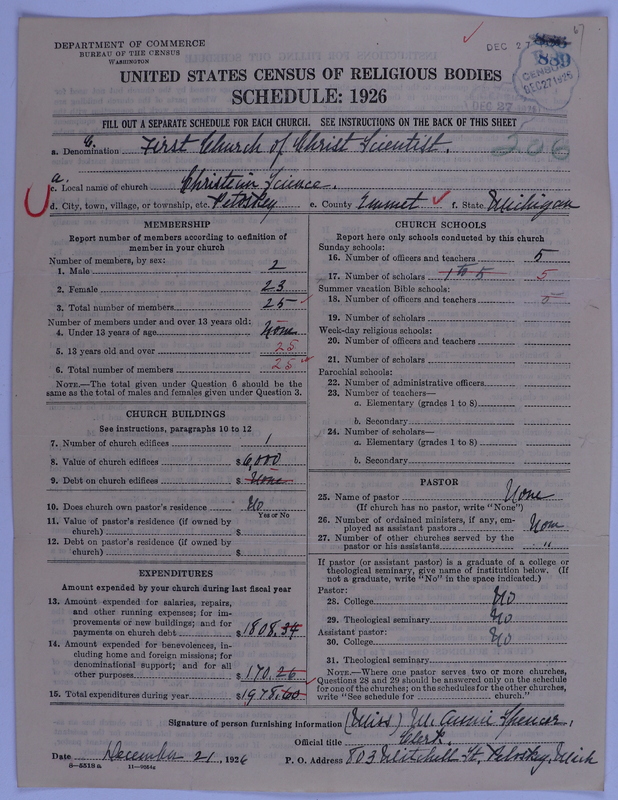 DEPARTMENT OF COMMERCE
BUREAU OF THE CENSUS
WASHINGTON
DEC 27
889
CENSUS
DEC 27 1926
DEC 27
UNITED STATES CENSUS OF RELIGIOUS BODIES
SCHEDULE: 1926
FILL OUT A SEPARATE SCHEDULE FOR EACH CHURCH. SEE INSTRUCTIONS ON THE BACK OF THIS SHEET
206
a. Denomination First Church of Christ Scientist.
c. Local name of church Christein Science.
d. City, town, village, or township, etc. Petoskey e. County Emmet f. State Michigan
MEMBERSHIP
Report number of members according to definition of
member in your church
Number of members, by sex:
1. Male 2
2. Female 23
3. Total number of members 25
Number of members under and over 13 years old:
4. Under 13 years of age None
5. 13 years old and over 25
6. Total number of members 25
NOTE.—The total given under Question 6 should be the
same as the total of males and females given under Question 3.
CHURCH BUILDINGS
See instructions, paragraphs 10 to 12
7. Number of church edifices 1
8. Value of church edifices $6,000
9. Debt on church edifices $ None
10. Does church own pastor's residence No
Yes or No
11. Value of pastor's residence (if owned by
church) $
12. Debt on pastor's residence (if owned by
church) $
EXPENDITURES
Amount expended by your church during last fiscal year
13. Amount expended for salaries, repairs,
and other running expenses; for im-
provements or new buildings; and for
payments on church debt $1808.34
14. Amount expended for benevolences, in-
cluding home and foreign missions; for
denominational support; and for all
other purposes $170.26
15. Total expenditures during year $1978.60
CHURCH SCHOOLS
Report here only schools conducted by this church
Sunday schools:
16. Number of officers and teachers 5
17. Number of scholars 1 to 5 5
Summer vacation Bible schools:
18. Number of officers and teachers 5
19. Number of scholars
Week-day religious schools:
20. Number of officers and teachers
21. Number of scholars
Parochial schools:
22. Number of administrative officers
23. Number of teachers—
a. Elementary (grades 1 to 8)
b. Secondary
24. Number of scholars—
a. Elementary (grades 1 to 8)
b. Secondary
PASTOR
25. Name of pastor None
(If church has no pastor, write "None")
26. Number of ordained ministers, if any, em-
ployed as assistant pastors None
27. Number of other churches served by the
pastor or his assistants "
If pastor (or assistant pastor) is a graduate of a college or
theological seminary, give name of institution below. (If
not a graduate, write "No" in the space indicated.)
Pastor:
28. College No
29. Theological seminary No
Assistant pastor:
30. College No
31. Theological seminary
NOTE.—Where one pastor serves two or more churches,
Questions 28 and 29 should be answered only on the schedule
for one of the churches; on the schedules for the other churches,
write "See schedule for church."
Signature of person furnishing information (Miss) M. Annie Spencer,
Official title Clerk.
Date December 21, 1926 P. O. Address 803 Mitchell St, Petoskey, Mich
8—5518 a 11—9354